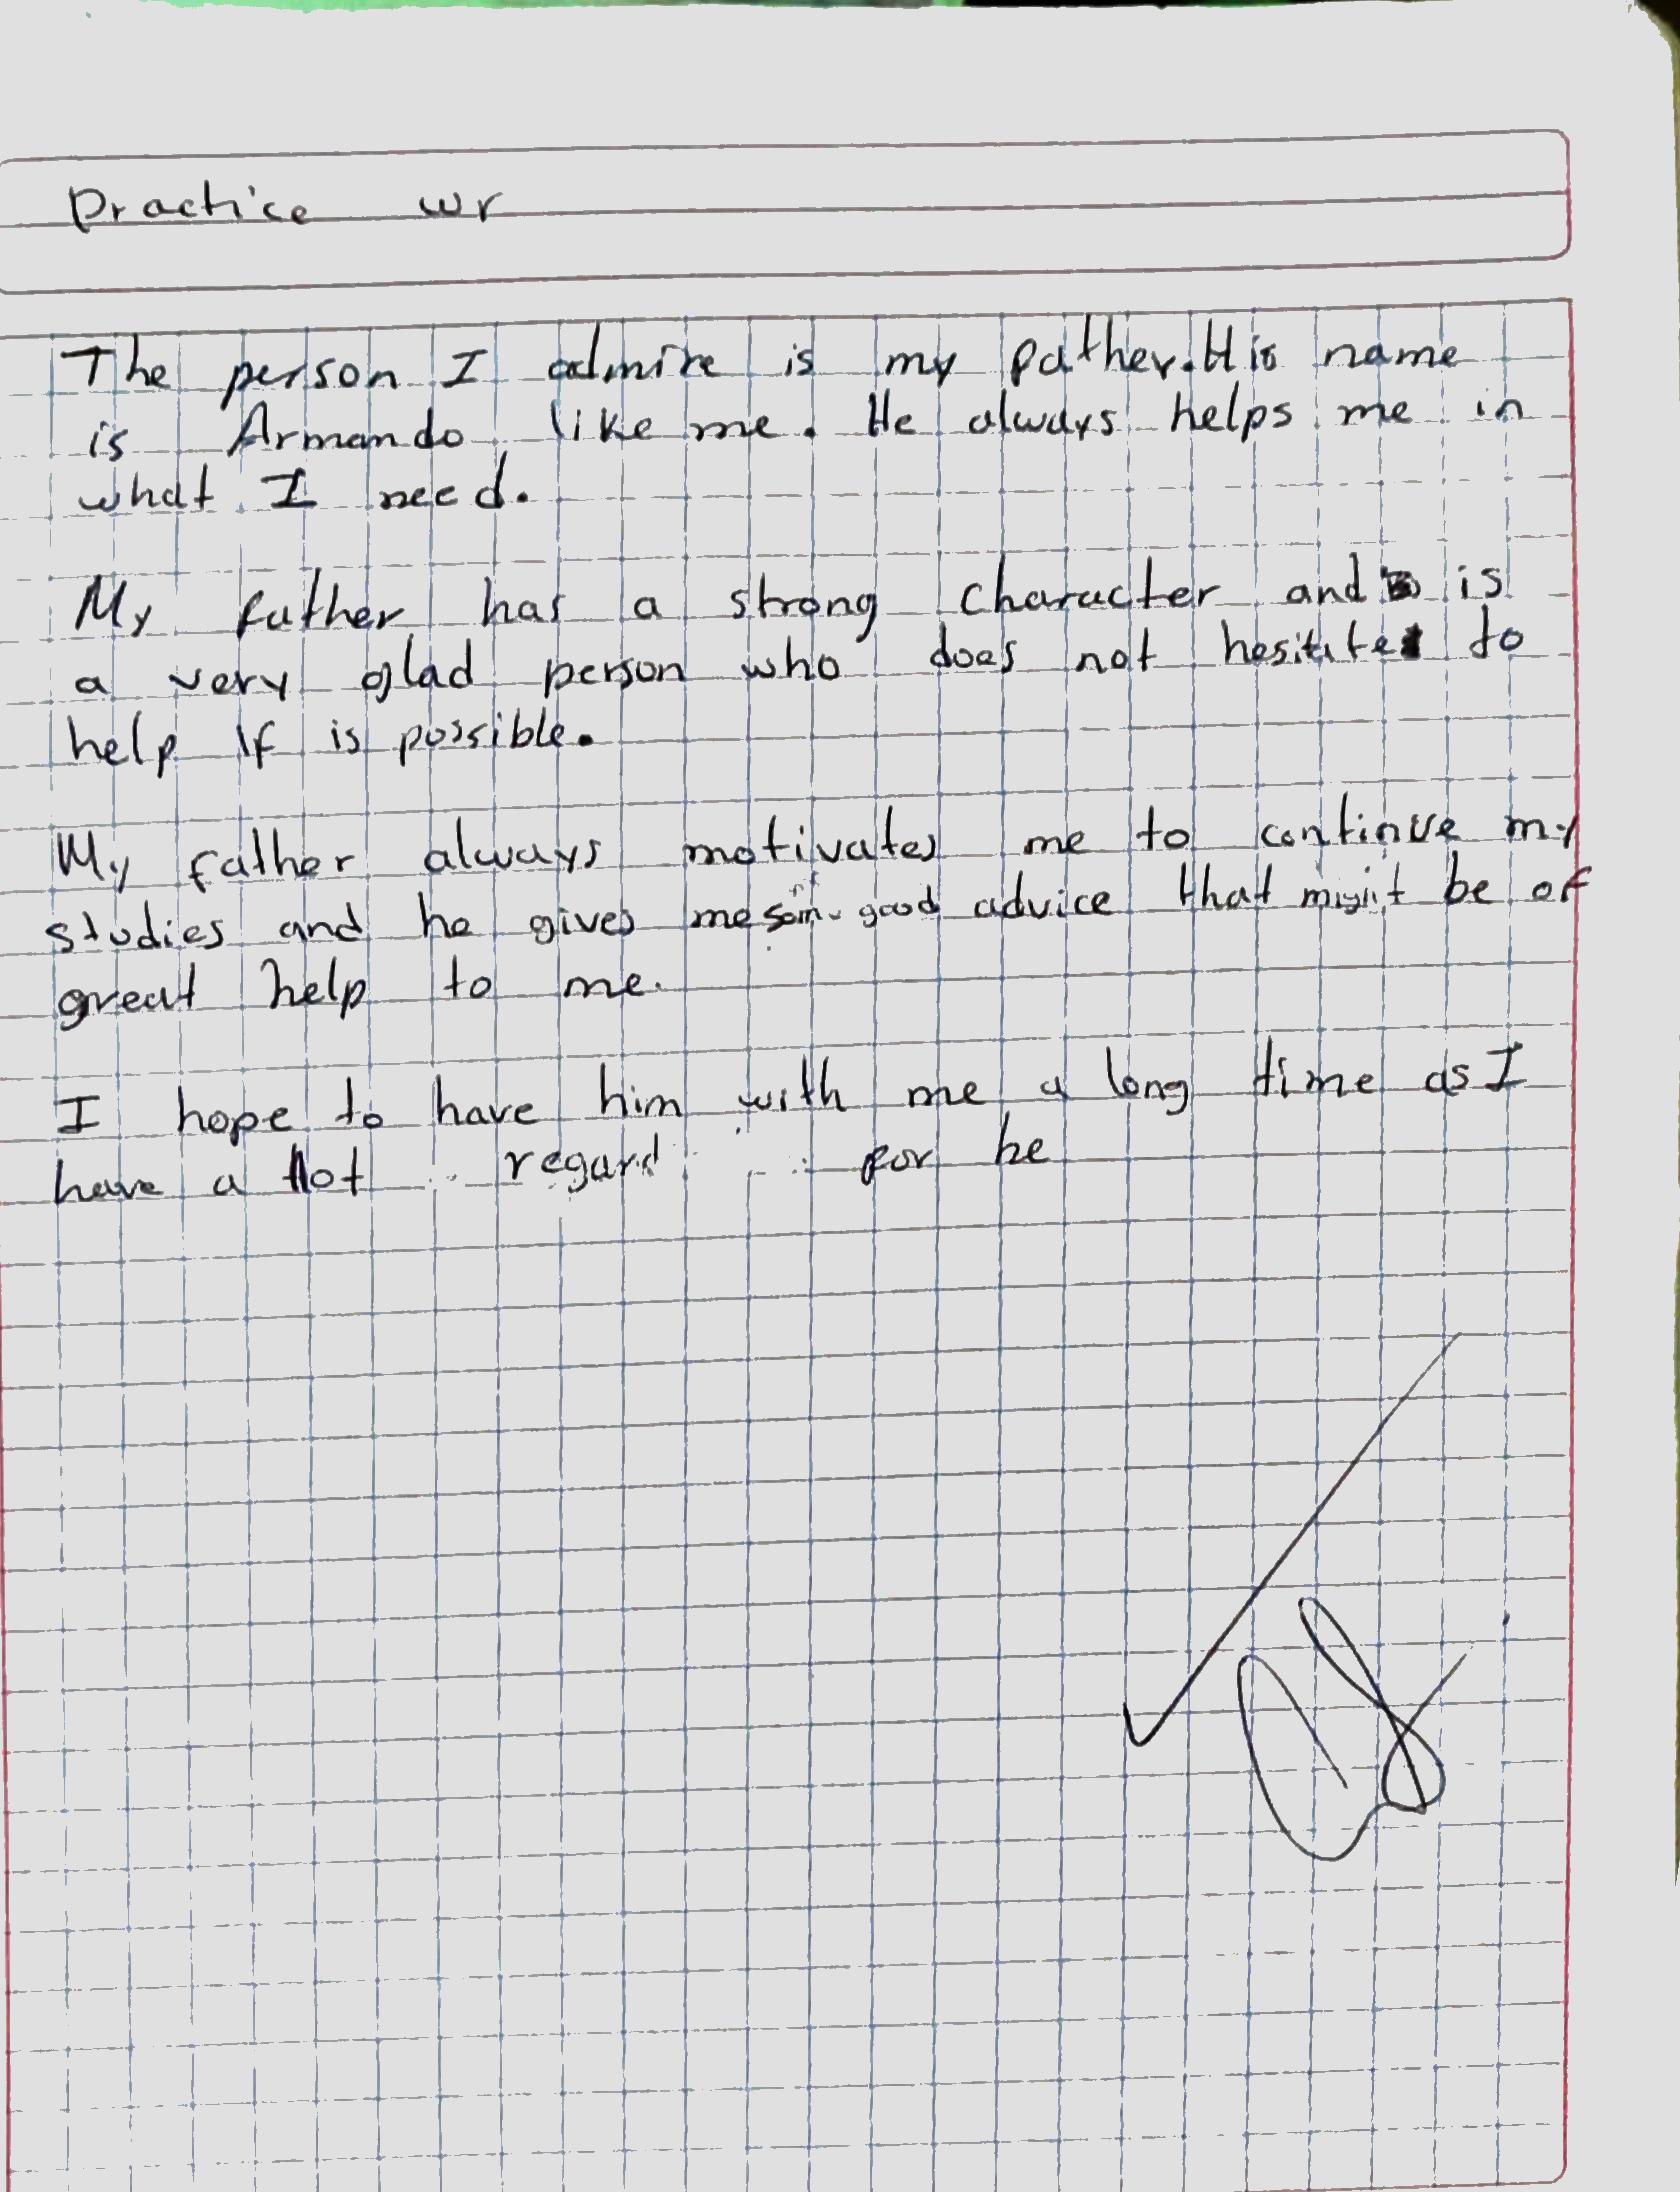 Practice wr
The person I admire is my father. His name
is Armando like me. He always helps me in
what I need.
My father has a strong character and is
a very glad person who does not hesitate to
help if is possible.
My father always motivates me to continue my
studies and he gives me some good advice that might be of
great help to me.
I hope to have him with me a long time as I
have a lot regard for he